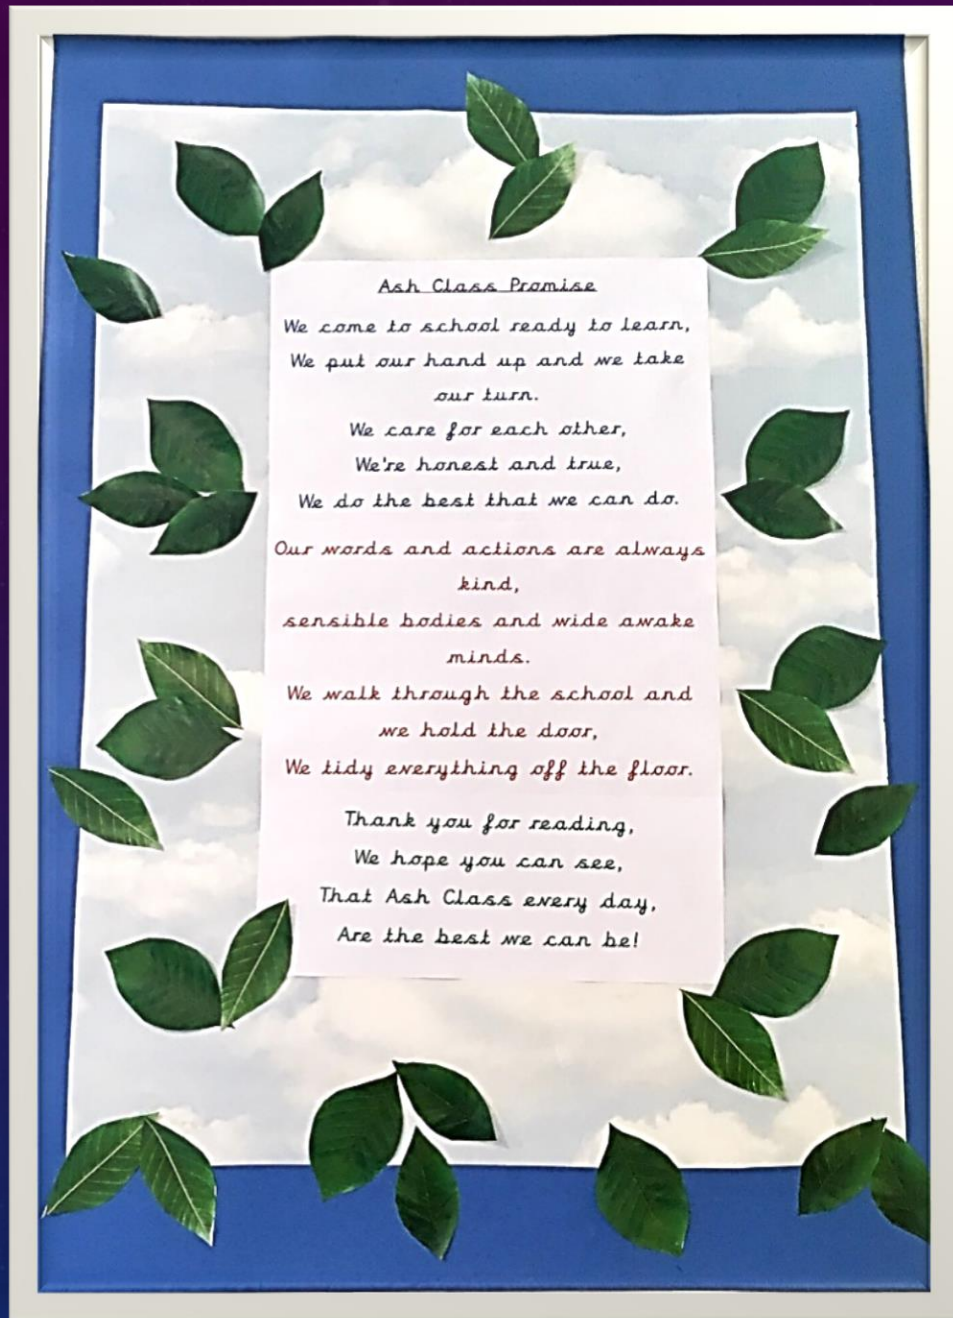 Ash Class Promise
We come to school ready to learn,
We put our hand up and we take
our turn.
We care for each other,
We're honest and true,
We do the best that we can do.
Our words and actions are always
kind,
sensible bodies and wide awake
minds.
We walk through the school and
we hold the door,
We tidy everything off the floor.
Thank you for reading,
We hope you can see,
That Ash Class every day,
Are the best we can be!